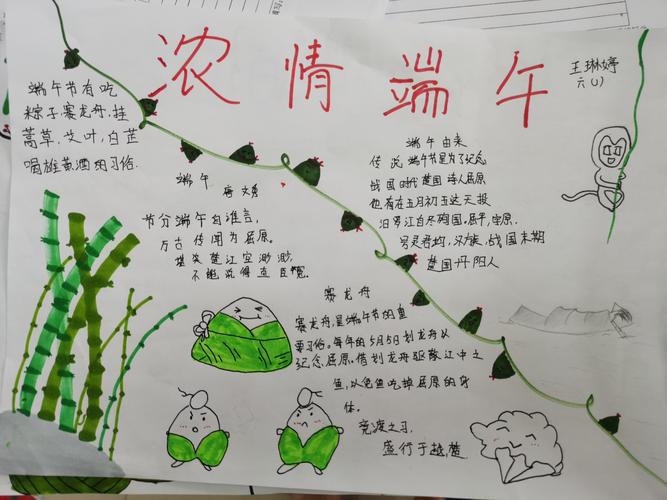 浓情端午
王琳婷
六(1)
端午节有吃
粽子赛龙舟、挂
蒿草、艾叶,白芷
喝雄黄酒的习俗.
端午 唐 文秀
节分端午自谁言,
万古传闻为屈原.
堪笑楚江空渺渺,
不能洗得直臣冤.
端午由来
传说端午节是为了纪念
战国时代楚国诗人屈原
他有在五月初五这天投
汨罗江自尽殉国.屈平,字原.
楚国丹阳人
赛龙舟
赛龙舟,是端午节的重
要习俗.每年的5月5日划龙舟以
纪念屈原.借划龙舟驱散江中之
鱼,以免鱼吃掉屈原的身
体.
竞渡之习,
盛行于越,楚